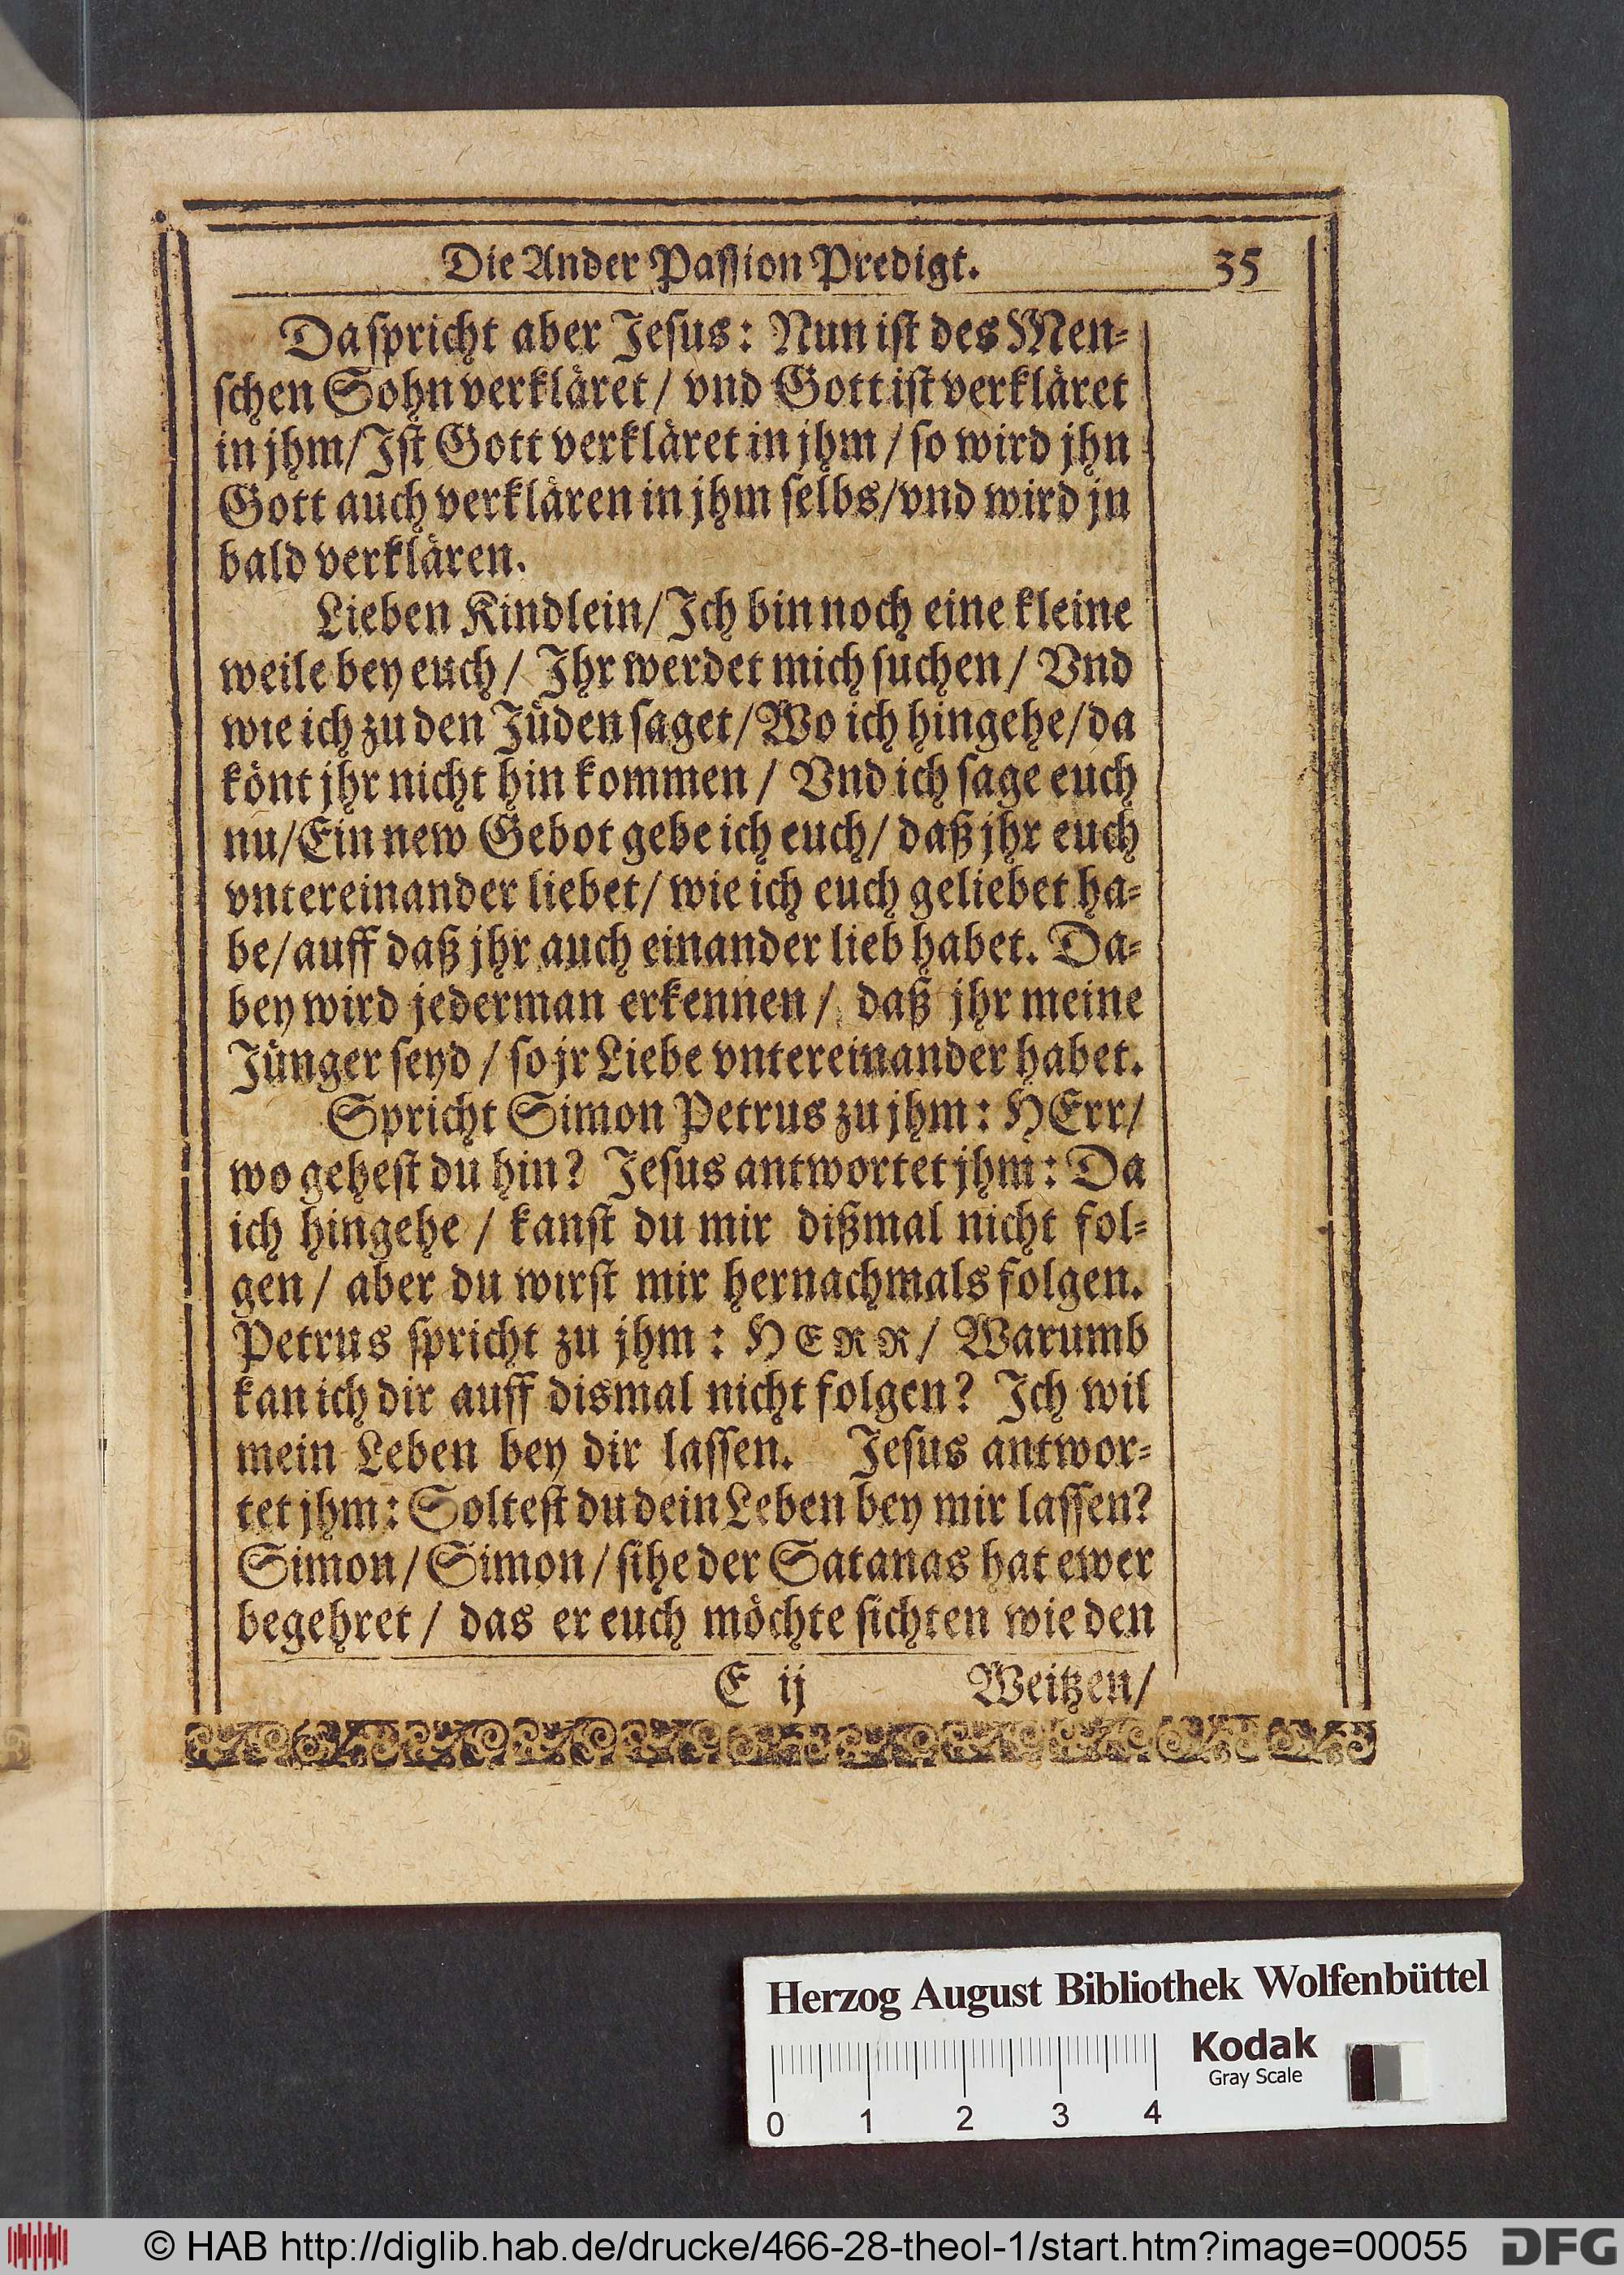 Die Ander Paſſion Predigt. 35
Da ſpricht aber Jeſus: Nun iſt des Men-
ſchen Sohn verklaͤret/ vnd Gott iſt verklaͤret
in jhm/ Iſt Gott verklaͤret in jhm / ſo wird jhn
Gott auch verklaͤren in jhm ſelbs/ vnd wird jn
bald verklaͤren.
Lieben Kindlein/ Ich bin noch eine kleine
weile bey euch/ Ihr werdet mich ſuchen/ Vnd
wie ich zu den Juͤden ſaget/ Wo ich hingehe/ da
koͤnt jhr nicht hin kommen / Vnd ich ſage euch
nu/ Ein new Gebot gebe ich euch/ daß jhr euch
vntereinander liebet/ wie ich euch geliebet ha-
be/ auff daß jhr auch einander lieb habet. Da-
bey wird jederman erkennen/ daß jhr meine
Juͤnger ſeyd / ſo jr Liebe vntereinander habet.
Spricht Simon Petrus zu jhm: HErr/
wo geheſt du hin? Jeſus antwortet jhm: Da
ich hingehe / kanſt du mir dißmal nicht fol-
gen/ aber du wirſt mir hernachmals folgen.
Petrus ſpricht zu jhm: HERR/ Warumb
kan ich dir auff dismal nicht folgen? Ich wil
mein Leben bey dir laſſen. Jeſus antwor-
tet jhm: Solteſt du dein Leben bey mir laſſen?
Simon/ Simon/ ſihe der Satanas hat ewer
begehret / das er euch moͤchte ſichten wie den
E ij Weitzen/
Herzog August Bibliothek Wolfenbüttel
Kodak
Gray Scale
0 1 2 3 4
© HAB http://diglib.hab.de/drucke/466-28-theol-1/start.htm?image=00055
DFG